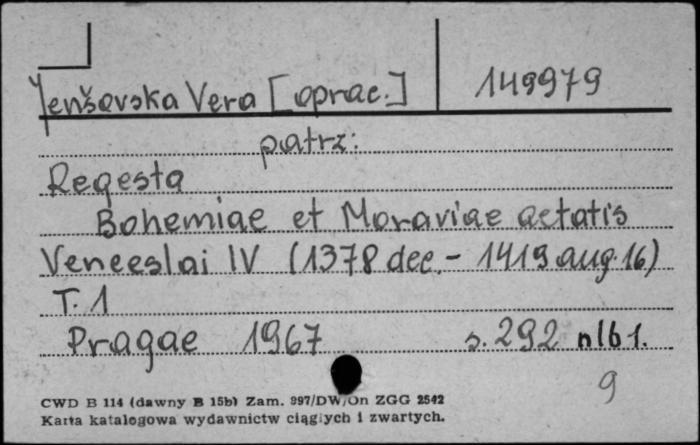 Jenšovska Vera [oprac.] 149979
patrz:
Regesta
Bohemiae et Moraviae aetatis
Venceslai IV (1378 dec. - 1419 aug. 16)
T. 1
Pragae 1967 s. 292 nlb 1.
9
CWD B 114 (dawny B 15b) Zam. 997/DW/On ZGG 2542
Karta katalogowa wydawnictw ciągłych i zwartych.